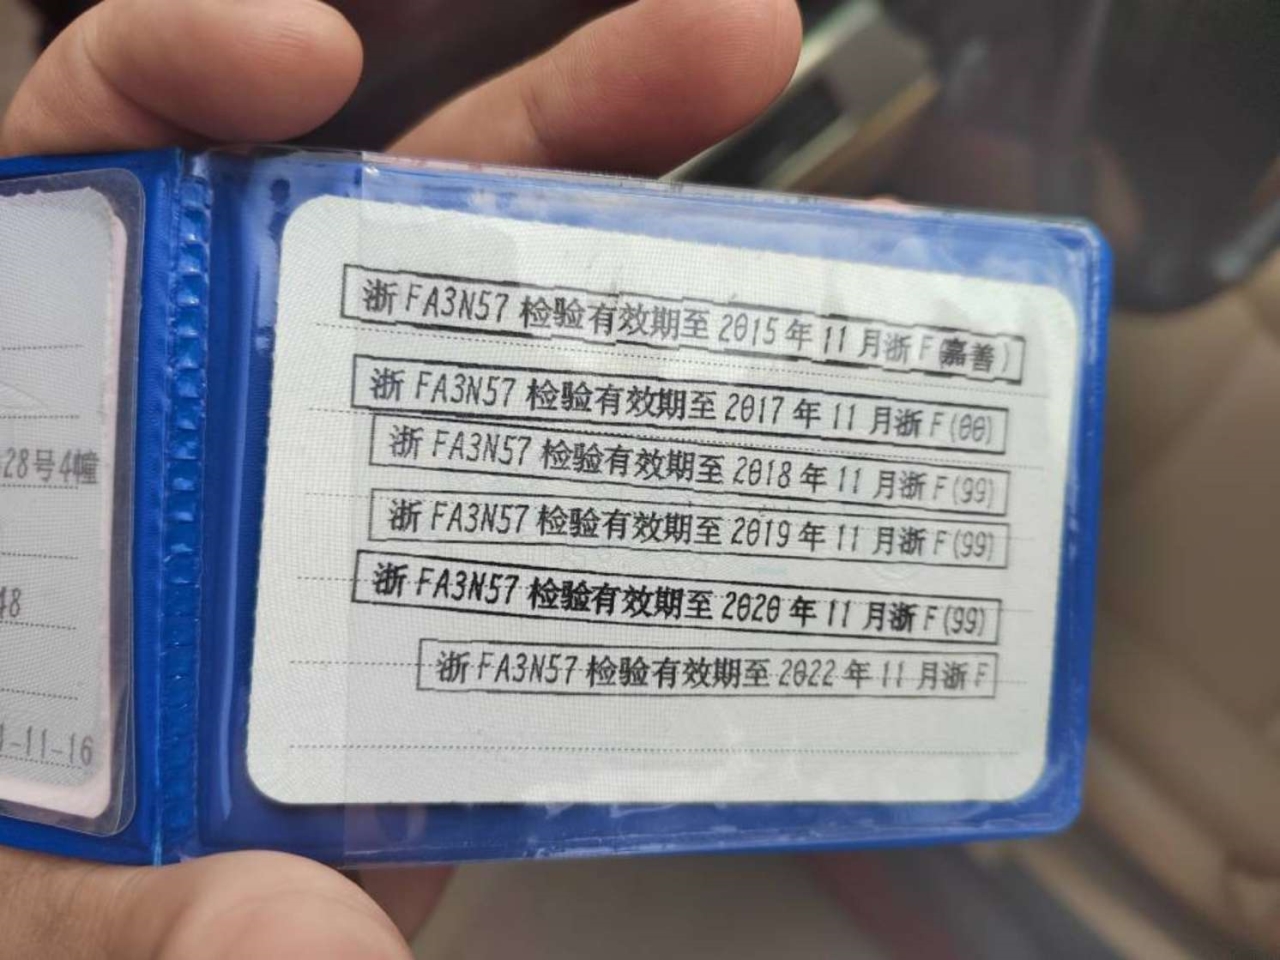 28号4幢
48
1-11-16
浙FA3N57 检验有效期至2015年11月浙F(嘉善)
浙FA3N57 检验有效期至2017年11月浙F(00)
浙FA3N57 检验有效期至2018年11月浙F(99)
浙FA3N57 检验有效期至2019年11月浙F(99)
浙FA3N57 检验有效期至2020年11月浙F(99)
浙FA3N57 检验有效期至2022年11月浙F